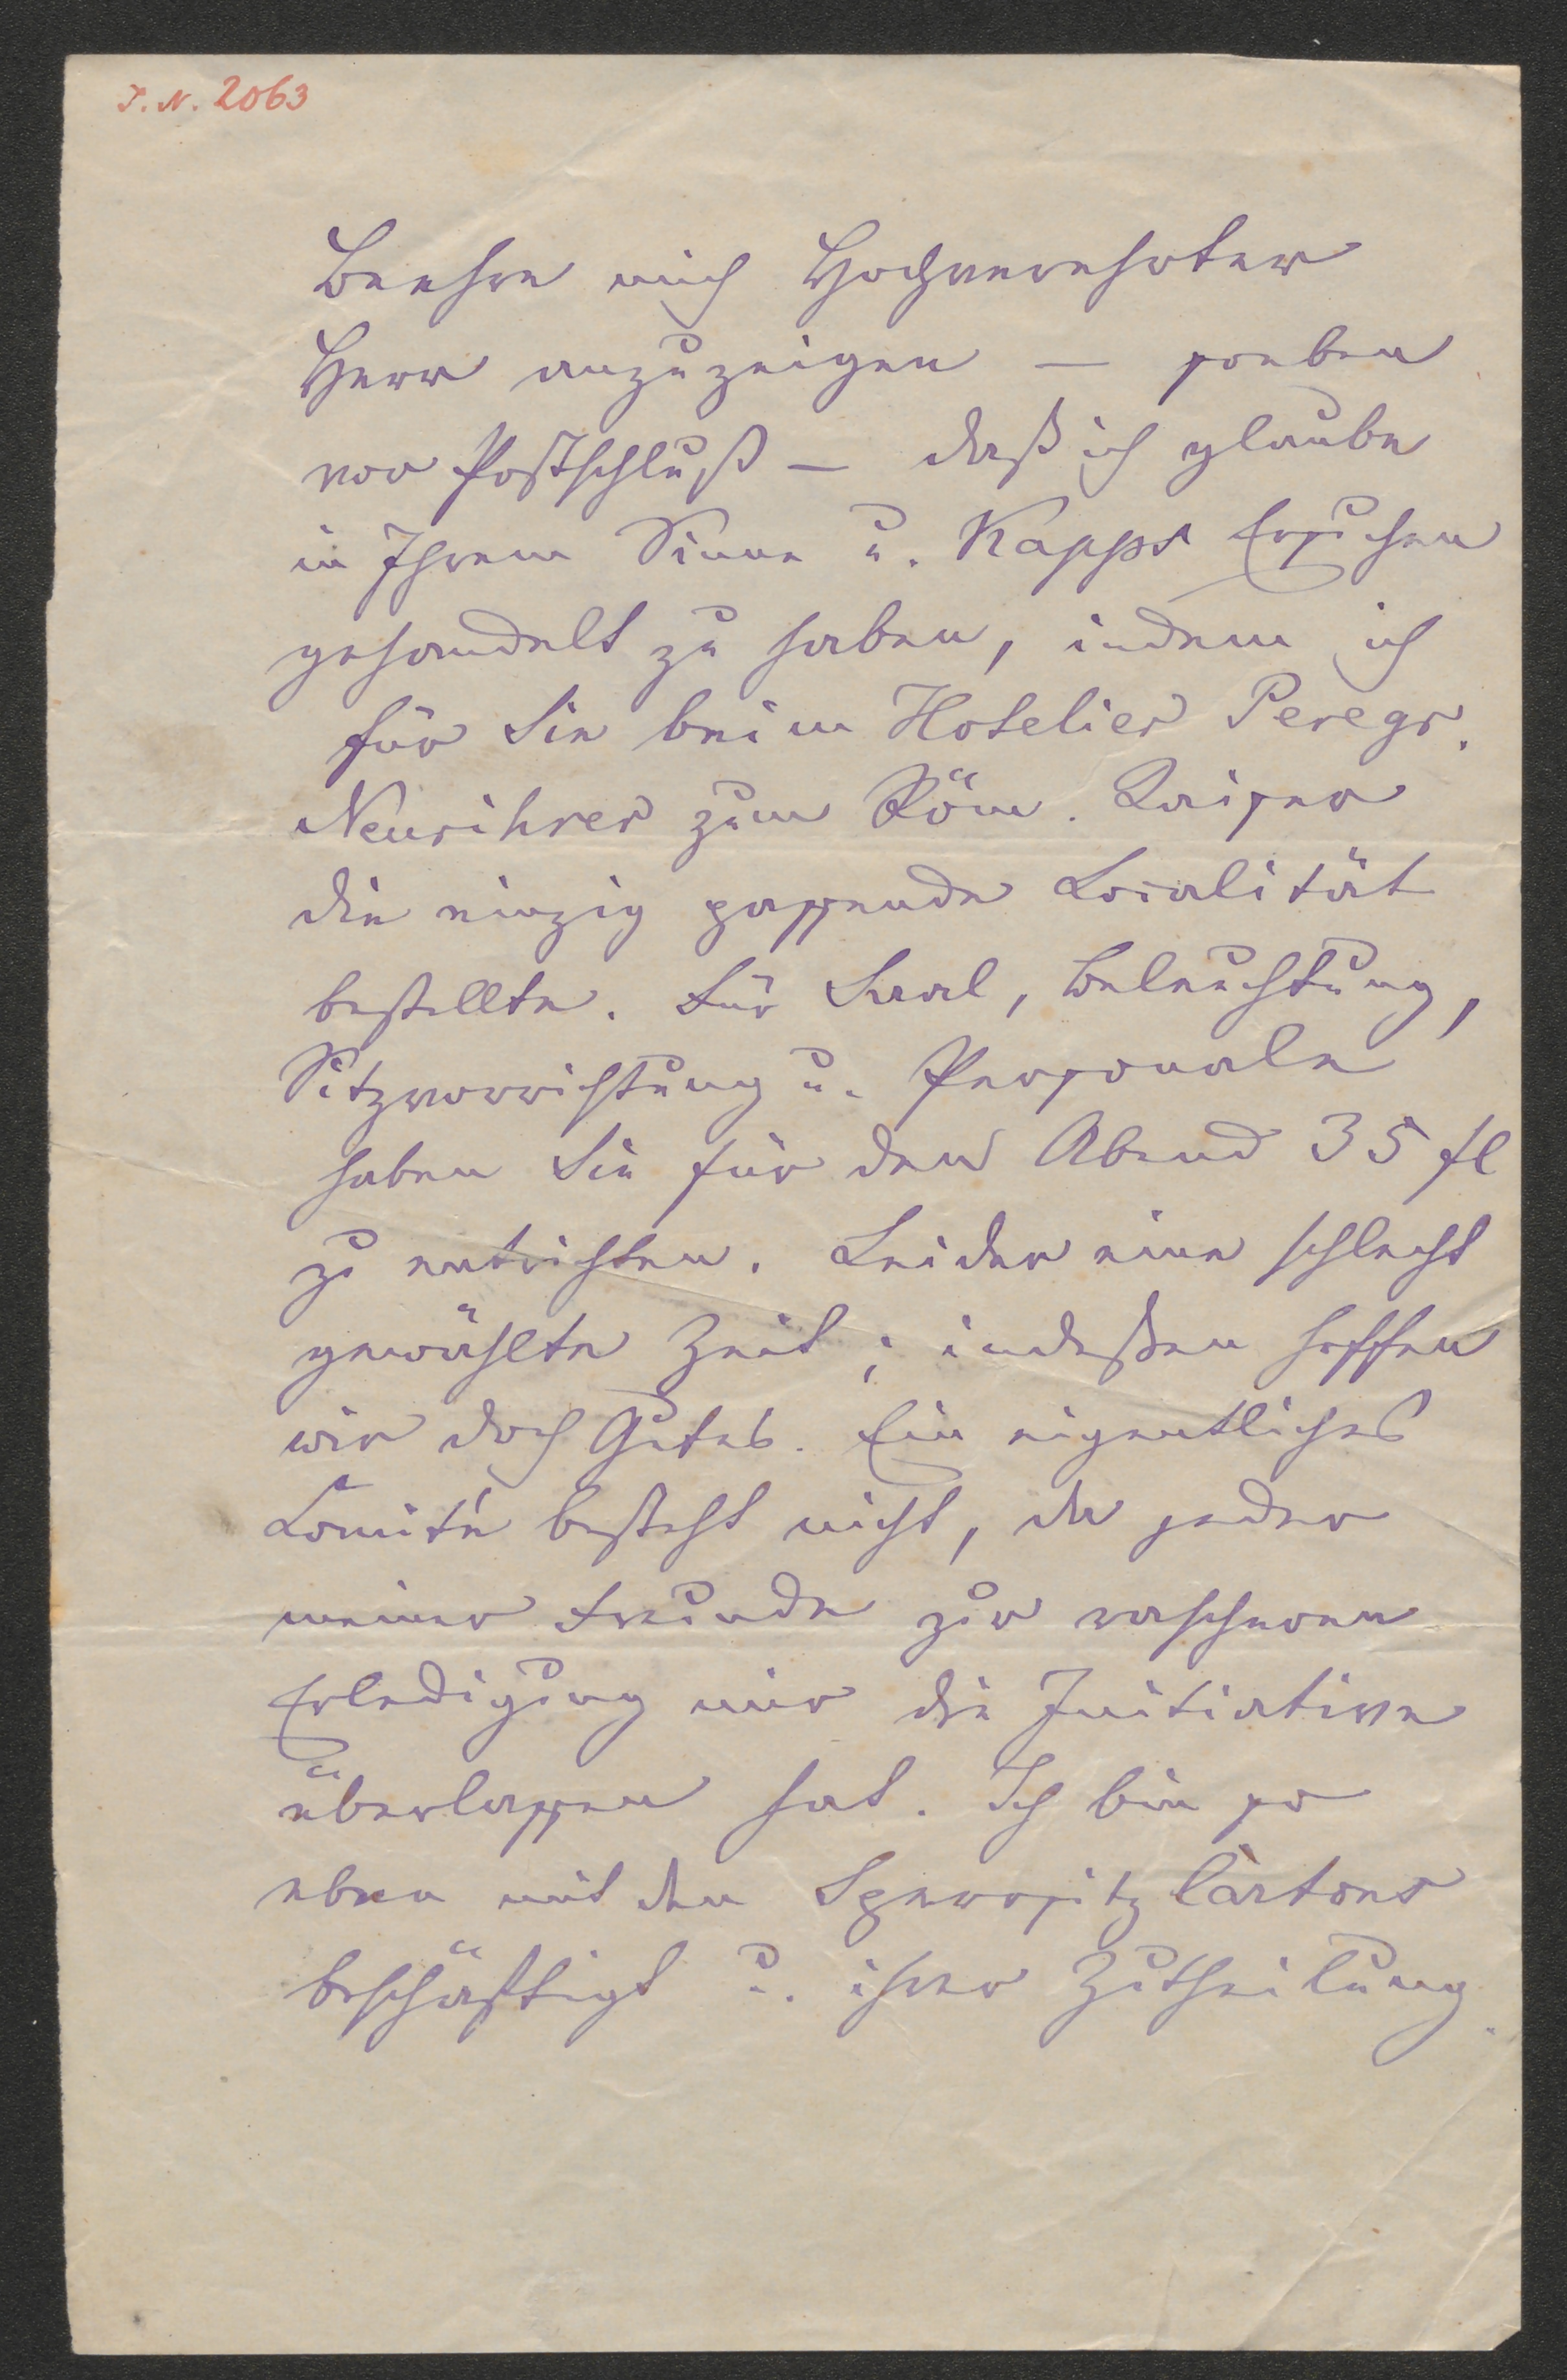 I. N. 2063
Beehre mich Hochverehrter
Herr anzuzeigen — soeben
vor Postschluß — daß ich glaube
in Ihrem Sinne u. Kapps Ersuchen
gehandelt zu haben, indem ich
für Sie beim Hotelier Peregr.
Neurihrer zum Röm. Kaiser
die einzig passende Localität
bestellte. Für Saal, Beleuchtung,
Sitzvorrichtung u. Personale
haben Sie für den Abend 35 fl
zu entrichten. Leider eine schlecht
gewählte Zeit; indeßen hoffen
wir doch Gutes. Ein eigentliches
Comité besteht nicht, da jeder
meiner Freunde zur rascheren
Erledigung mir die Initiative
überlassen hat. Ich bin so
eben mit den Sperrsitz Cartons
beschäftigt u. ihrer Zutheilung.